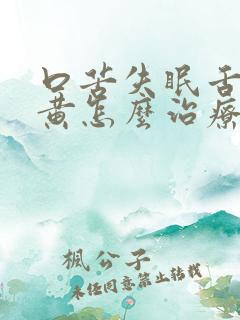 口苦失眠舌
黄怎麼治療
楓公子
未经同意禁止转载